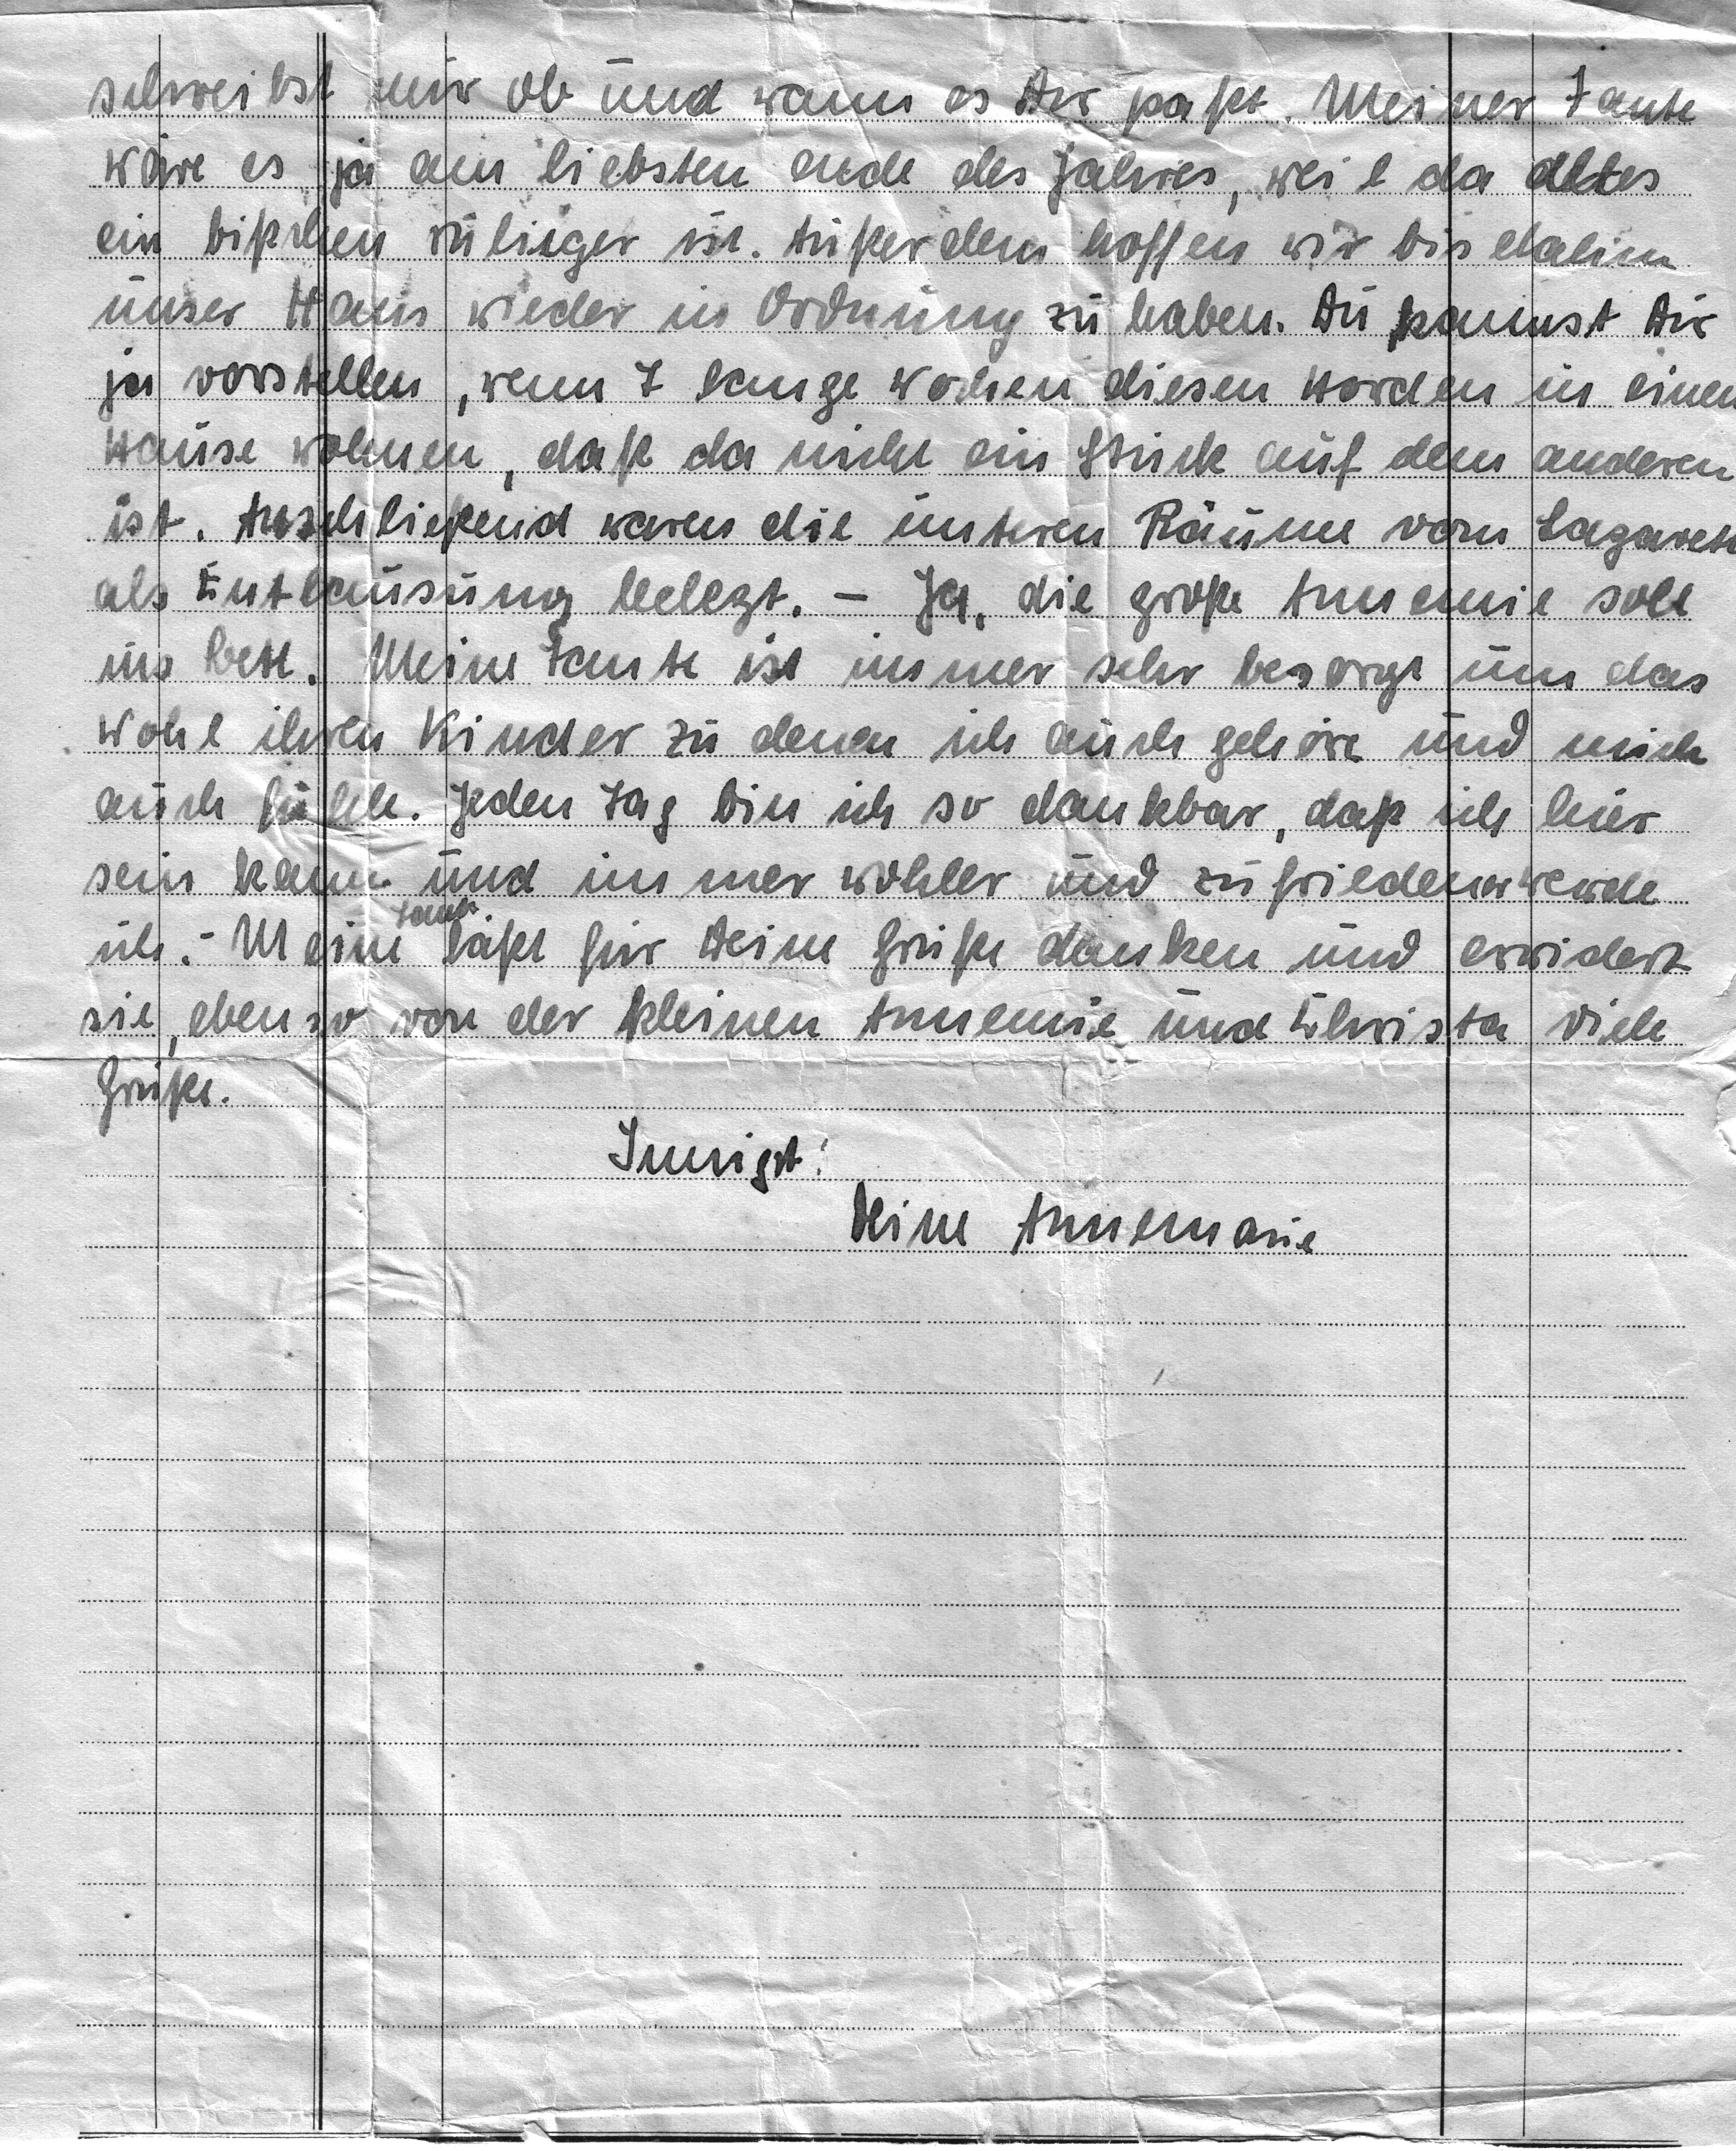 schreibst mir ob und wann es Dir paßt. Meiner Tante
wäre es ja am liebsten ende des Jahres, weil da alles
ein bißchen ruhiger ist. Außerdem hoffen wir bis dahin
unser Haus wieder in Ordnung zu haben. Du kannst Dir
ja vorstellen, wenn 7 lange Wochen diesen Horden in einen
Hause wohnen, daß da nicht ein Stück auf dem anderen
ist. Anschließend waren die unteren Räume vom Lazarett
als Entlausung belegt. - Ja, die große Annemie soll
ins bett. Meine Tante ist immer sehr besorgt um das
Wohl ihren Kinder zu denen ich auch gehöre und mich
auch fühle. Jeden Tag bin ich so dankbar, daß ich hier
sein kann und immer wohler und zufriedener werde
ich. - Meine Tante läßt für Deine Grüße danken und erwidert
sie, ebenso von der kleinen Annemie und Christa viele
Grüße.
Innigst!
Deine Annemarie